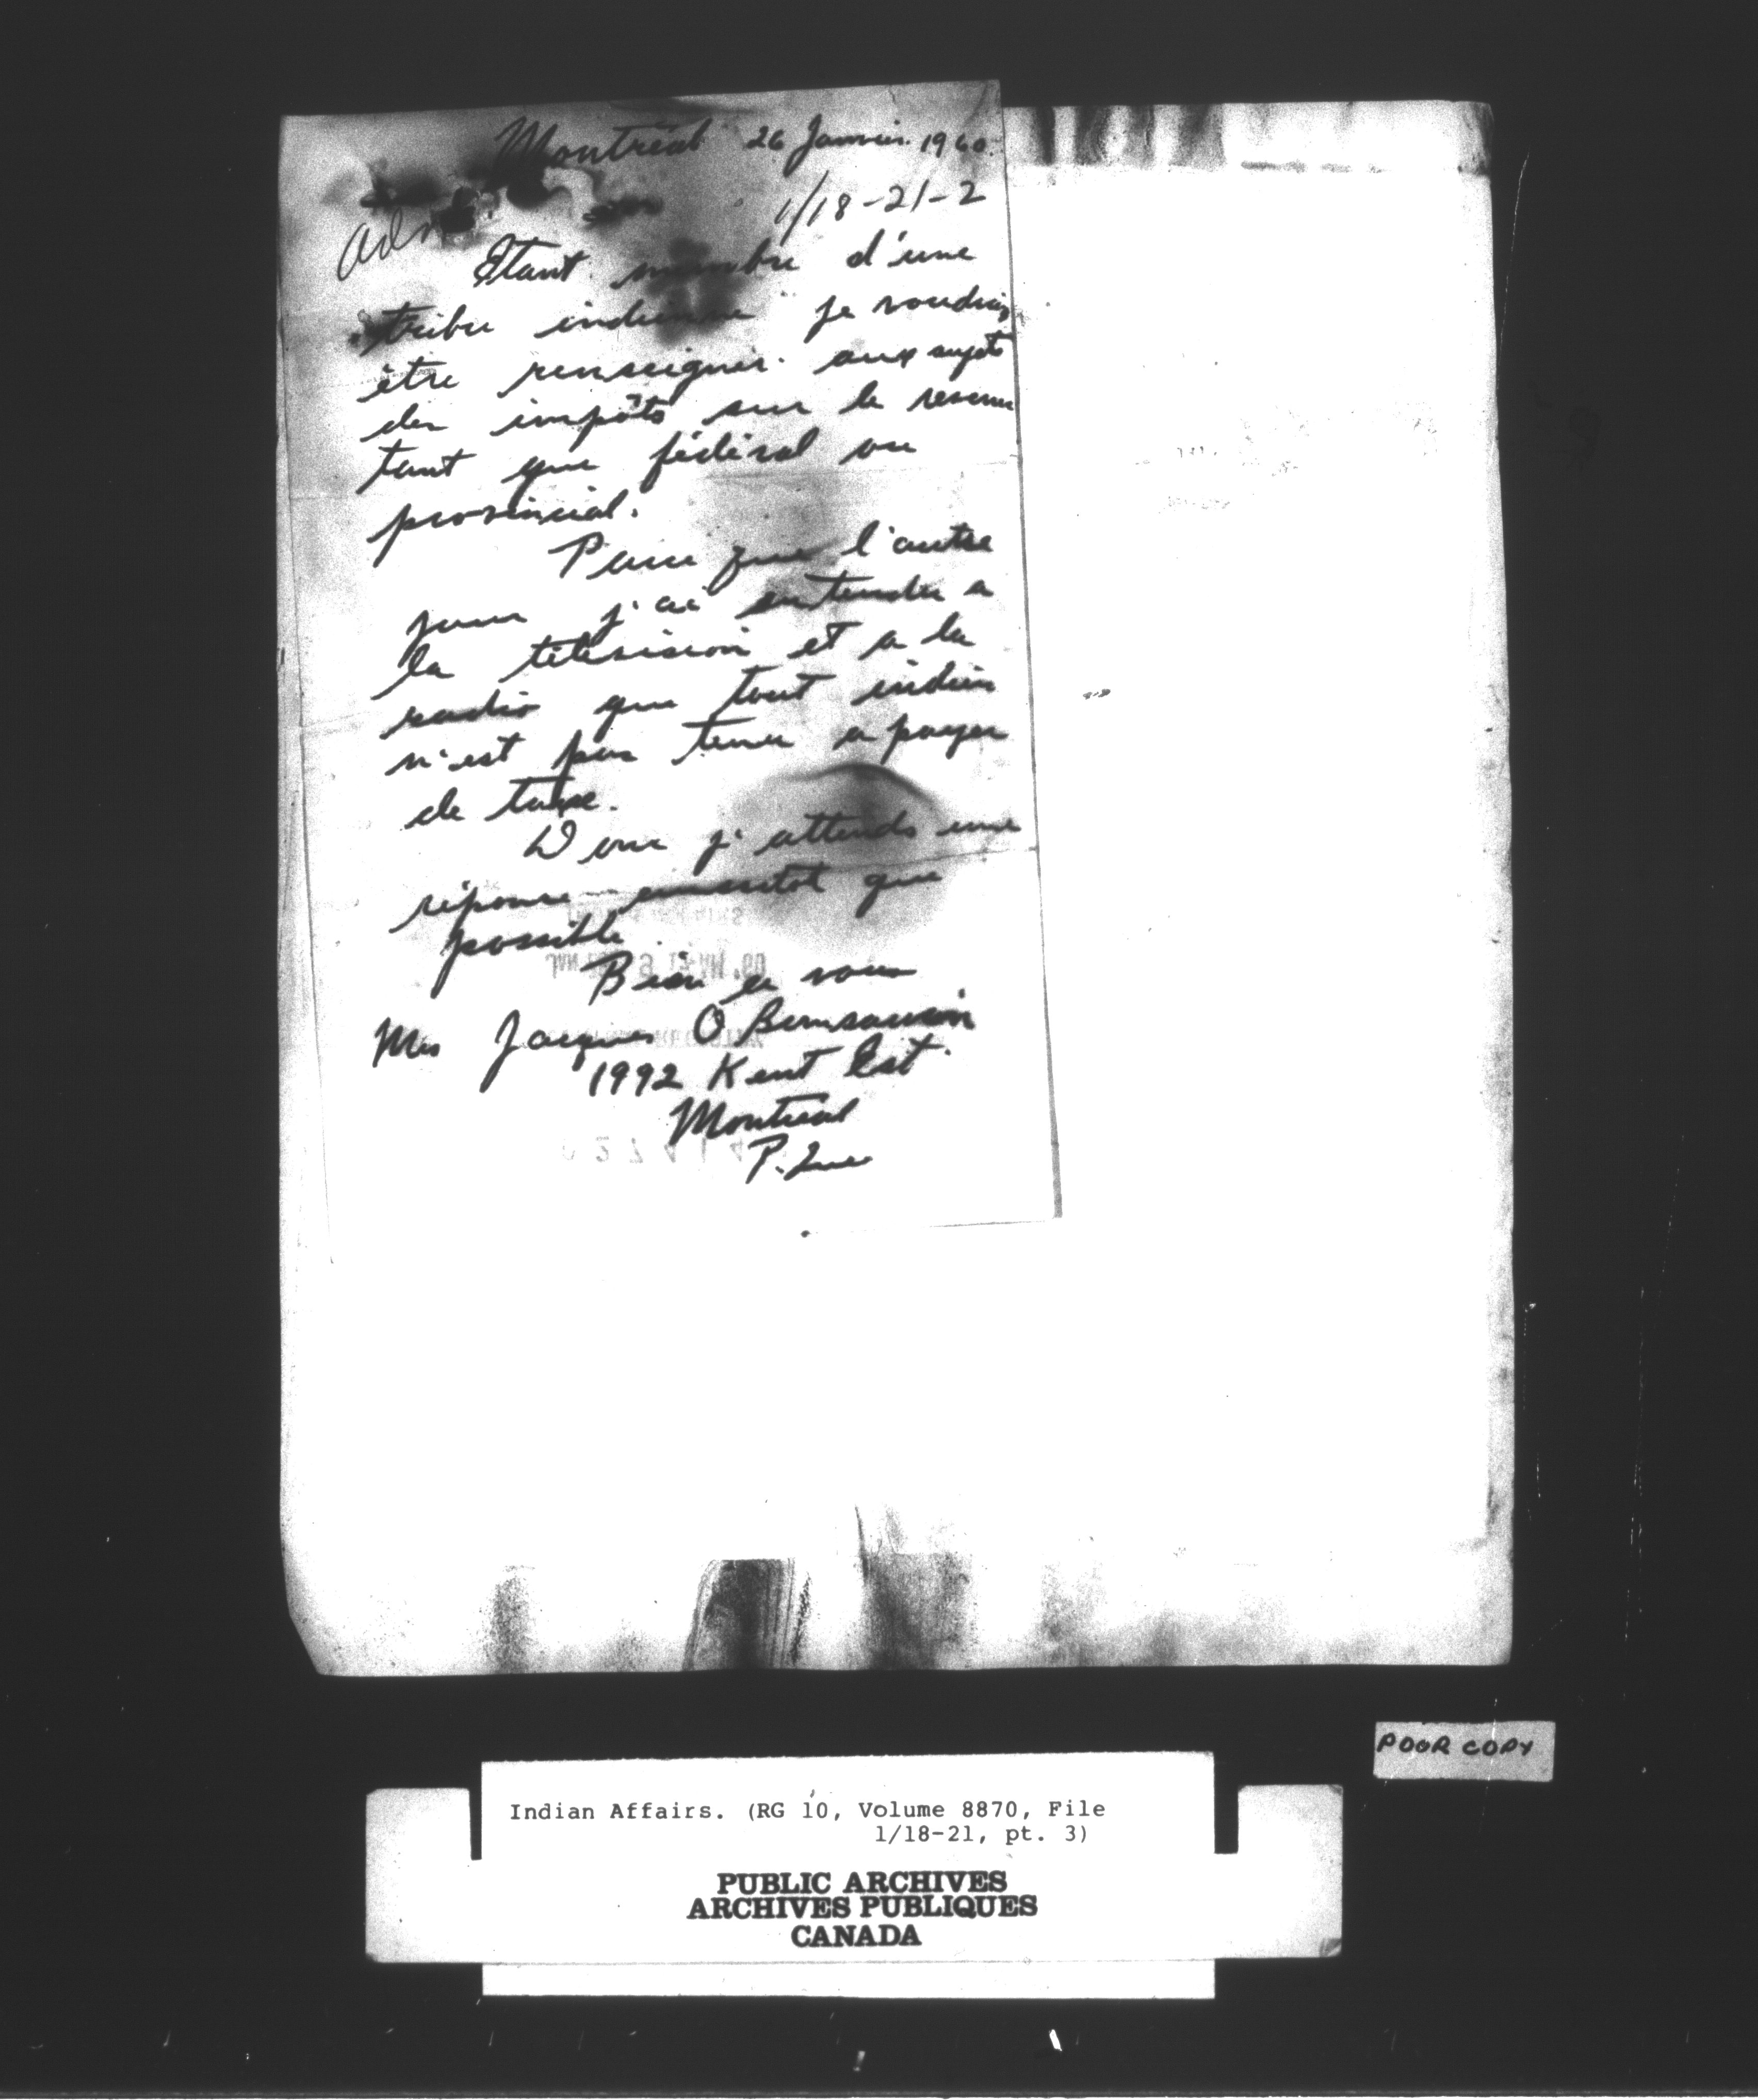 Montréal 26 Janvier 1960
1/18-21-2
Adm
Etant membre d'une
tribu indienne je voudrais
être renseigner aux sujets
des impôts sur le revenu
tant que fédéral ou
provincial.
Parce que l'autre
jour j'ai entendu a
la télévision et a la
radio que tout indien
n'est pas tenu a payer
de taxe.
Donc j'attends une
réponse aussitot que
possible
Bien a vous
Mrs Jacques O Bomsawin
1992 Kent Est.
Montréal
P. Que
POOR COPY
Indian Affairs. (RG 10, Volume 8870, File
1/18-21, pt. 3)
PUBLIC ARCHIVES
ARCHIVES PUBLIQUES
CANADA